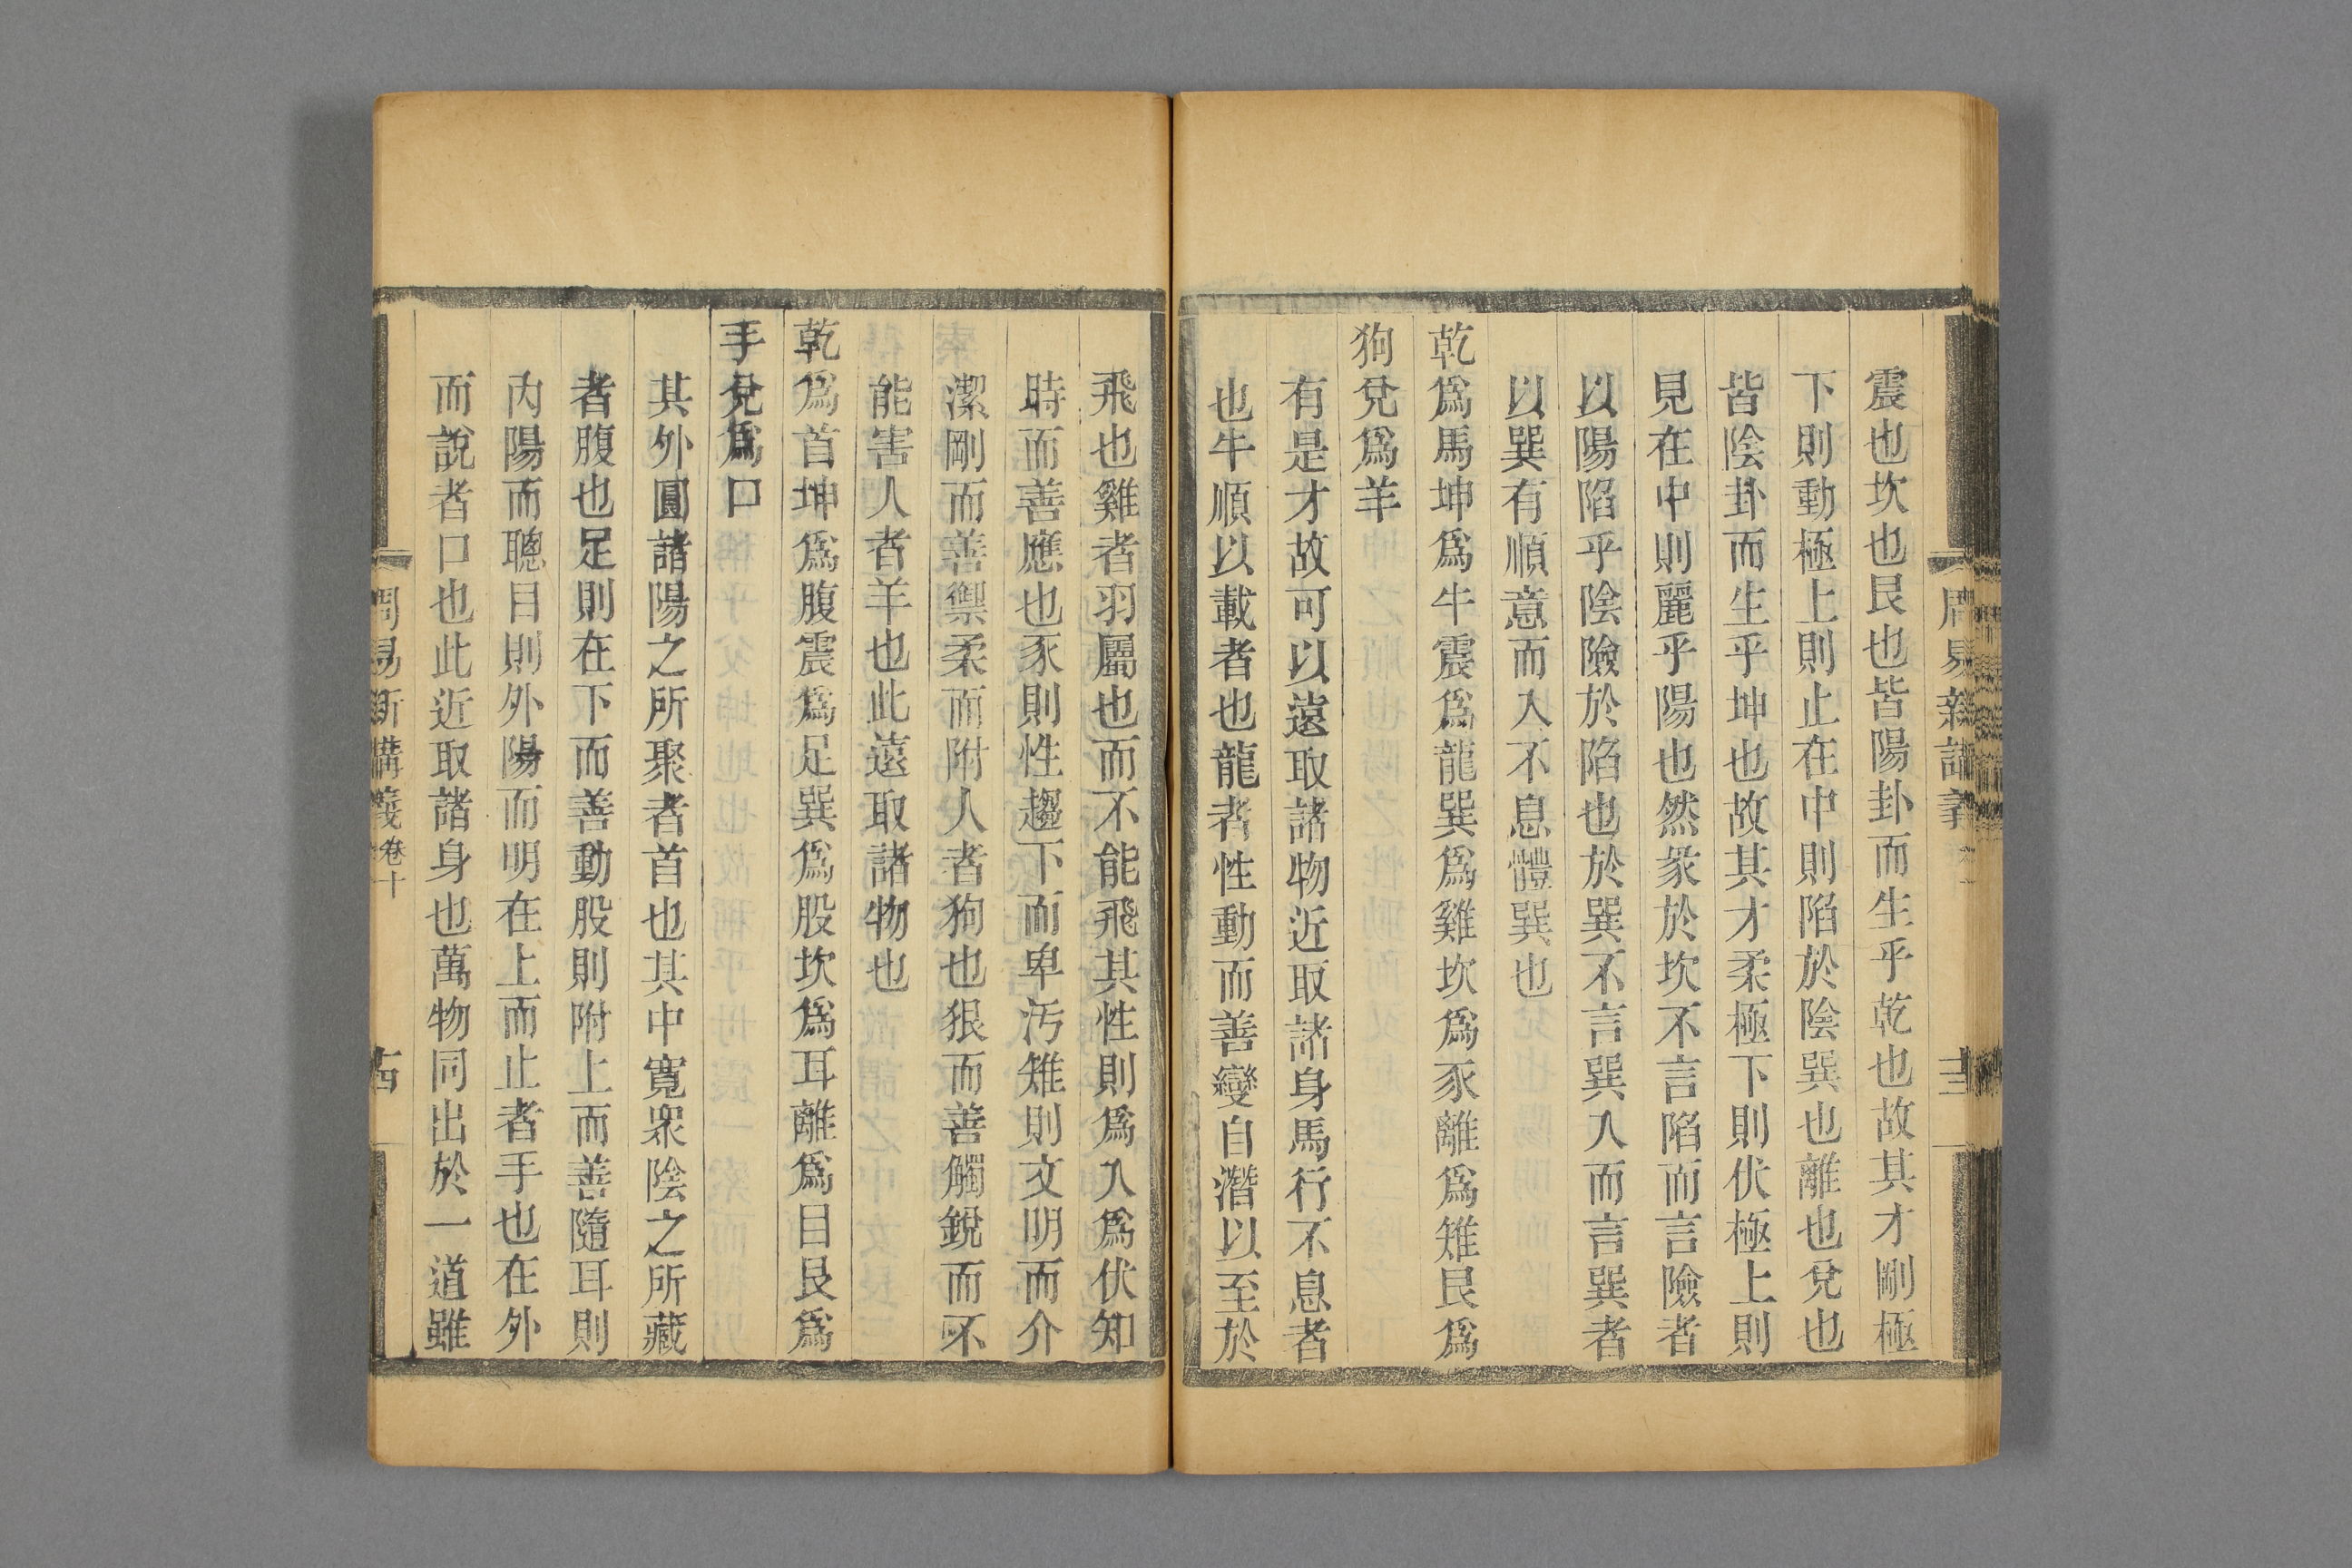 周易新講義
十三
震也坎也艮也皆陽卦而生乎乾也故其才剛極
下則動極上則止在中則陷於陰巽也離也兌也
皆陰卦而生乎坤也故其才柔極下則伏極上則
見在中則麗乎陽也然彖於坎不言陷而言險者
以陽陷乎陰險於陷也於巽不言巽入而言巽者
以巽有順意而入不息體巽也
乾爲馬坤爲牛震爲龍巽爲雞坎爲豕離爲雉艮爲
狗兌爲羊
有是才故可以遠取諸物近取諸身馬行不息者
也牛順以載者也龍者性動而善變自潛以至於
飛也雞者羽屬也而不能飛其性則爲入爲伏知
時而善應也豕則性趨下而卑汚雉則文明而介
潔剛而善禦柔而附人者狗也狠而善觸銳而不
能害人者羊也此遠取諸物也
乾爲首坤爲腹震爲足巽爲股坎爲耳離爲目艮爲
手兌爲口
其外圓諸陽之所聚者首也其中寬衆陰之所藏
者腹也足則在下而善動股則附上而善隨耳則
內陽而聰目則外陽而明在上而止者手也在外
而說者口也此近取諸身也萬物同出於一道雖
周易新講義卷十
十四